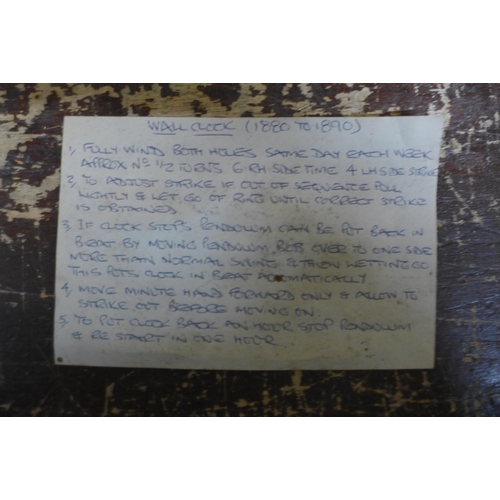 WALL CLOCK (1880 TO 1890)
1, FULLY WIND BOTH HOLES SAME DAY EACH WEEK
APPROX No 1/2 TURNS 6 RH SIDE TIME 4 LH SIDE STRIKE
2, TO ADJUST STRIKE IF OUT OF SEQUENCE PULL
LIGHTLY & LET GO OF RING UNTIL CORRECT STRIKE
IS OBTAINED
3, IF CLOCK STOPS PENDULUM CAN BE PUT BACK IN
BEAT BY MOVING PENDULUM BOB OVER TO ONE SIDE
MORE THAN NORMAL SWING & THEN LETTING GO
THIS PUTS CLOCK IN BEAT AUTOMATICALLY
4, MOVE MINUTE HAND FORWARD ONLY & ALLOW TO
STRIKE OUT BEFORE MOVING ON.
5, TO PUT CLOCK BACK AN HOUR STOP PENDULUM
& RE START IN ONE HOUR